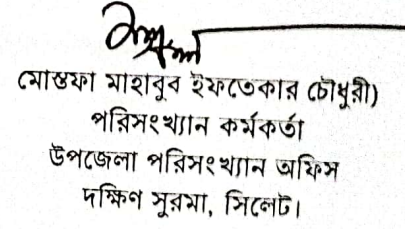 মোস্তফা মাহাবুব ইফতেকার চৌধুরী)
পরিসংখ্যান কর্মকর্তা
উপজেলা পরিসংখ্যান অফিস
দক্ষিণ সুরমা, সিলেট।